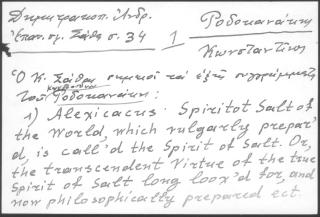 Δημητρακοπ. Ἀνδρ.
Ἐπαν. σ. Σάθα σ. 34
1
Ῥοδοκανάκης
Κωνσταντῖνος
Ὁ Κ. Σάθας σημειοῖ καὶ ἑξῆς συγγράμματα
τοῦ Κωνσταντίνου Ῥοδοκανάκη:
1) Alexicacus Spiritot Salt of
the World, which vulgarly prepar'
d, is call'd the Spirit of Salt. Or,
the transcendent Virtue of the true
Spirit of Salt long look'd for, and
now philosophically prepared ect.